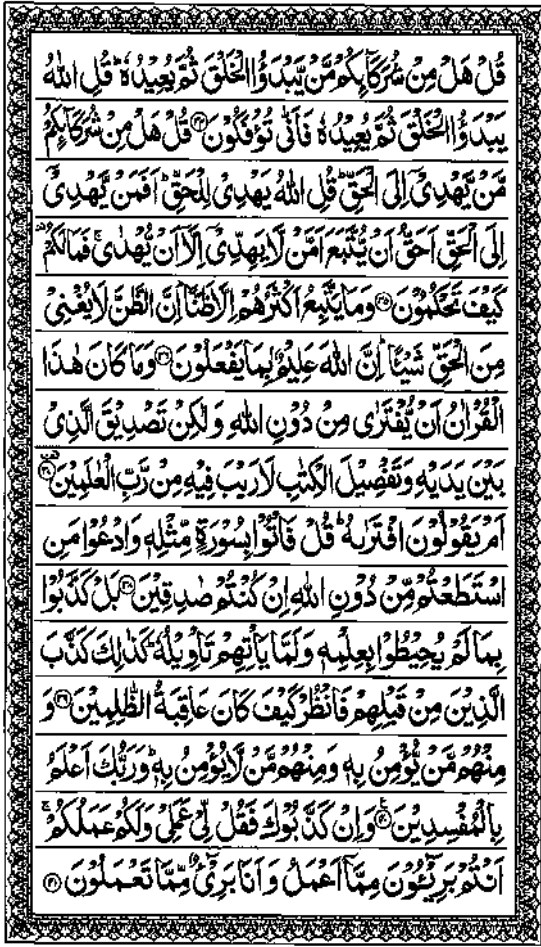 قُلْ هَلْ مِنْ شُرَكَآئِكُمْ مَّنْ يَّبْدَؤُا الْخَلْقَ ثُمَّ يُعِيْدُهٗ ؕ قُلِ اللّٰهُ
يَبْدَؤُا الْخَلْقَ ثُمَّ يُعِيْدُهٗ فَاَنّٰى تُؤْفَكُوْنَ ﴿۳۴﴾ قُلْ هَلْ مِنْ شُرَكَآئِكُمْ
مَّنْ يَّهْدِيْۤ اِلَى الْحَقِّ ؕ قُلِ اللّٰهُ يَهْدِيْ لِلْحَقِّ ؕ اَفَمَنْ يَّهْدِيْۤ
اِلَى الْحَقِّ اَحَقُّ اَنْ يُّتَّبَعَ اَمَّنْ لَّا يَهِدِّيْۤ اِلَّاۤ اَنْ يُّهْدٰى ۚ فَمَا لَكُمْ ۫
كَيْفَ تَحْكُمُوْنَ ﴿۳۵﴾ وَمَا يَتَّبِعُ اَكْثَرُهُمْ اِلَّا ظَنًّا ؕ اِنَّ الظَّنَّ لَا يُغْنِيْ
مِنَ الْحَقِّ شَيْـًٔا ؕ اِنَّ اللّٰهَ عَلِيْمٌۢ بِمَا يَفْعَلُوْنَ ﴿۳۶﴾ وَمَا كَانَ هٰذَا
الْقُرْاٰنُ اَنْ يُّفْتَرٰى مِنْ دُوْنِ اللّٰهِ وَلٰكِنْ تَصْدِيْقَ الَّذِيْ
بَيْنَ يَدَيْهِ وَتَفْصِيْلَ الْكِتٰبِ لَا رَيْبَ فِيْهِ مِنْ رَّبِّ الْعٰلَمِيْنَ ﴿۳۷﴾
اَمْ يَقُوْلُوْنَ افْتَرٰىهُ ؕ قُلْ فَاْتُوْا بِسُوْرَةٍ مِّثْلِهٖ وَادْعُوْا مَنِ
اسْتَطَعْتُمْ مِّنْ دُوْنِ اللّٰهِ اِنْ كُنْتُمْ صٰدِقِيْنَ ﴿۳۸﴾ بَلْ كَذَّبُوْا
بِمَا لَمْ يُحِيْطُوْا بِعِلْمِهٖ وَلَمَّا يَاْتِهِمْ تَاْوِيْلُهٗ ؕ كَذٰلِكَ كَذَّبَ
الَّذِيْنَ مِنْ قَبْلِهِمْ فَانْظُرْ كَيْفَ كَانَ عَاقِبَةُ الظّٰلِمِيْنَ ﴿۳۹﴾ وَ
مِنْهُمْ مَّنْ يُّؤْمِنُ بِهٖ وَمِنْهُمْ مَّنْ لَّا يُؤْمِنُ بِهٖ ؕ وَرَبُّكَ اَعْلَمُ
بِالْمُفْسِدِيْنَ ﴿۴۰﴾ وَاِنْ كَذَّبُوْكَ فَقُلْ لِّيْ عَمَلِيْ وَلَكُمْ عَمَلُكُمْ ۚ
اَنْتُمْ بَرِيْٓئُوْنَ مِمَّاۤ اَعْمَلُ وَاَنَا بَرِيْٓءٌ مِّمَّا تَعْمَلُوْنَ ﴿۴۱﴾